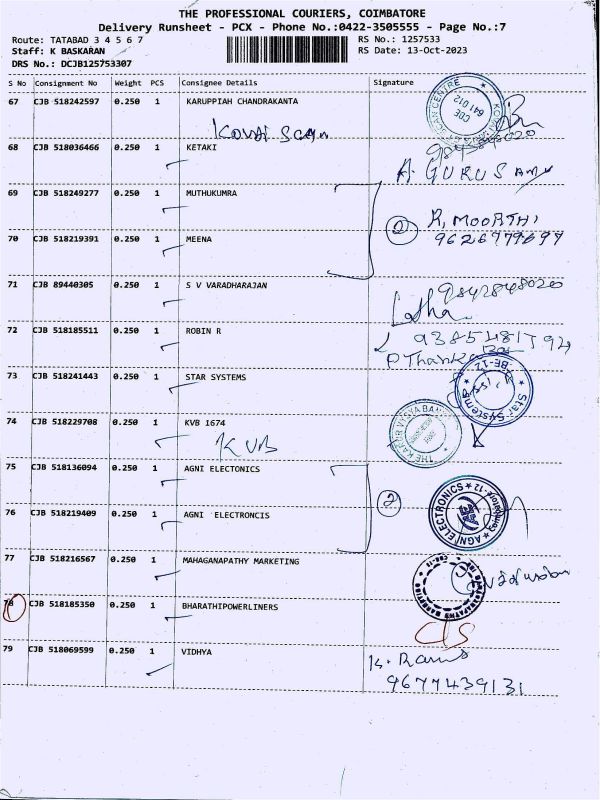 THE PROFESSIONAL COURIERS, COIMBATORE
Delivery Runsheet - PCX - Phone No.:0422-3505555 - Page No.:7
Route: TATABAD 3 4 5 6 7
RS No.: 1257533
Staff: K BASKARAN
RS Date: 13-Oct-2023
DRS No.: DCJB125753307
S No Consignment No Weight PCS Consignee Details Signature
67 CJB 518242597 0.250 1 KARUPPIAH CHANDRAKANTA
KOVAI SCAN CENTRE
CBE
641 012
Kovai Scan
68 CJB 518036466 0.250 1 KETAKI
A. GURUSAMY
69 CJB 518249277 0.250 1 MUTHUKUMRA
2 R. MOORTHI
70 CJB 518219391 0.250 1 MEENA
71 CJB 89440305 0.250 1 S V VARADHARAJAN
9842848020
Latha
72 CJB 518185511 0.250 1 ROBIN R
73 CJB 518241443 0.250 1 STAR SYSTEMS
Star Systems
CBE-12
74 CJB 518229708 0.250 1 KVB 1674
KVB
THE KARUR VYSYA BANK
75 CJB 518136094 0.250 1 AGNI ELECTONICS
2
AGNI ELECTRONICS
76 CJB 518219409 0.250 1 AGNI ELECTRONCIS
77 CJB 518216567 0.250 1 MAHAGANAPATHY MARKETING
78 CJB 518185350 0.250 1 BHARATHIPOWERLINERS
C/S
79 CJB 518069599 0.250 1 VIDHYA
9677439131